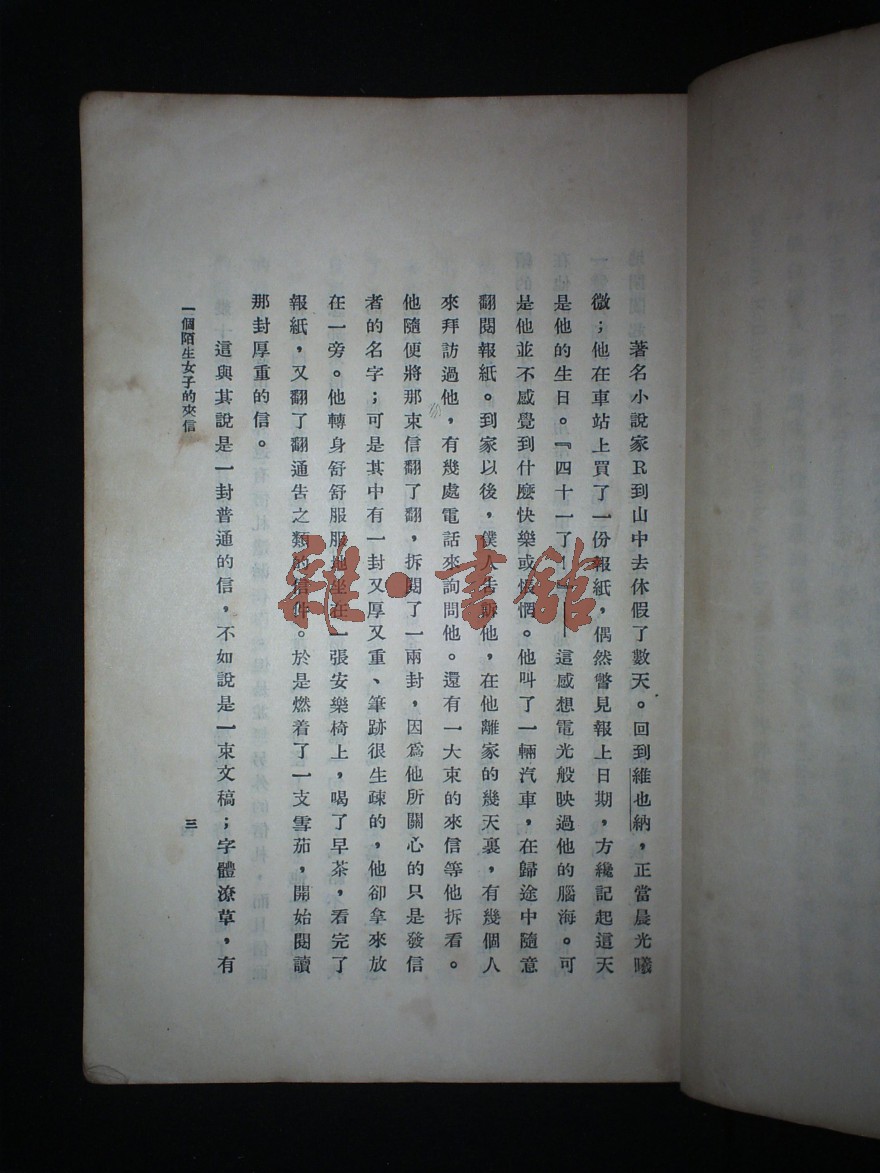 著名小說家R到山中去休假了數天。回到維也納，正當晨光曦
微；他在車站上買了一份報紙，偶然瞥見報上日期，方纔記起這天
是他的生日。『四十一了！』——這感想電光般映過他的腦海。可
是他並不感覺到什麼快樂或悵惘。他叫了一輛汽車，在歸途中隨意
翻閱報紙。到家以後，僕人告訴他，在他離家的幾天裏，有幾個人
來拜訪過他，有幾處電話來詢問他。還有一大束的來信等他拆看。
他隨便將那束信翻了翻，拆閱了一兩封，因爲他所關心的只是發信
者的名字；可是其中有一封又厚又重、筆跡很生疎的，他卻拿來放
在一旁。他轉身舒舒服服地坐在一張安樂椅上，喝了早茶，看完了
報紙，又翻了翻通告之類的信件。於是燃着了一支雪茄，開始閱讀
那封厚重的信。
這與其說是一封普通的信，不如說是一束文稿；字體潦草，有
一個陌生女子的來信
三
雜·書館